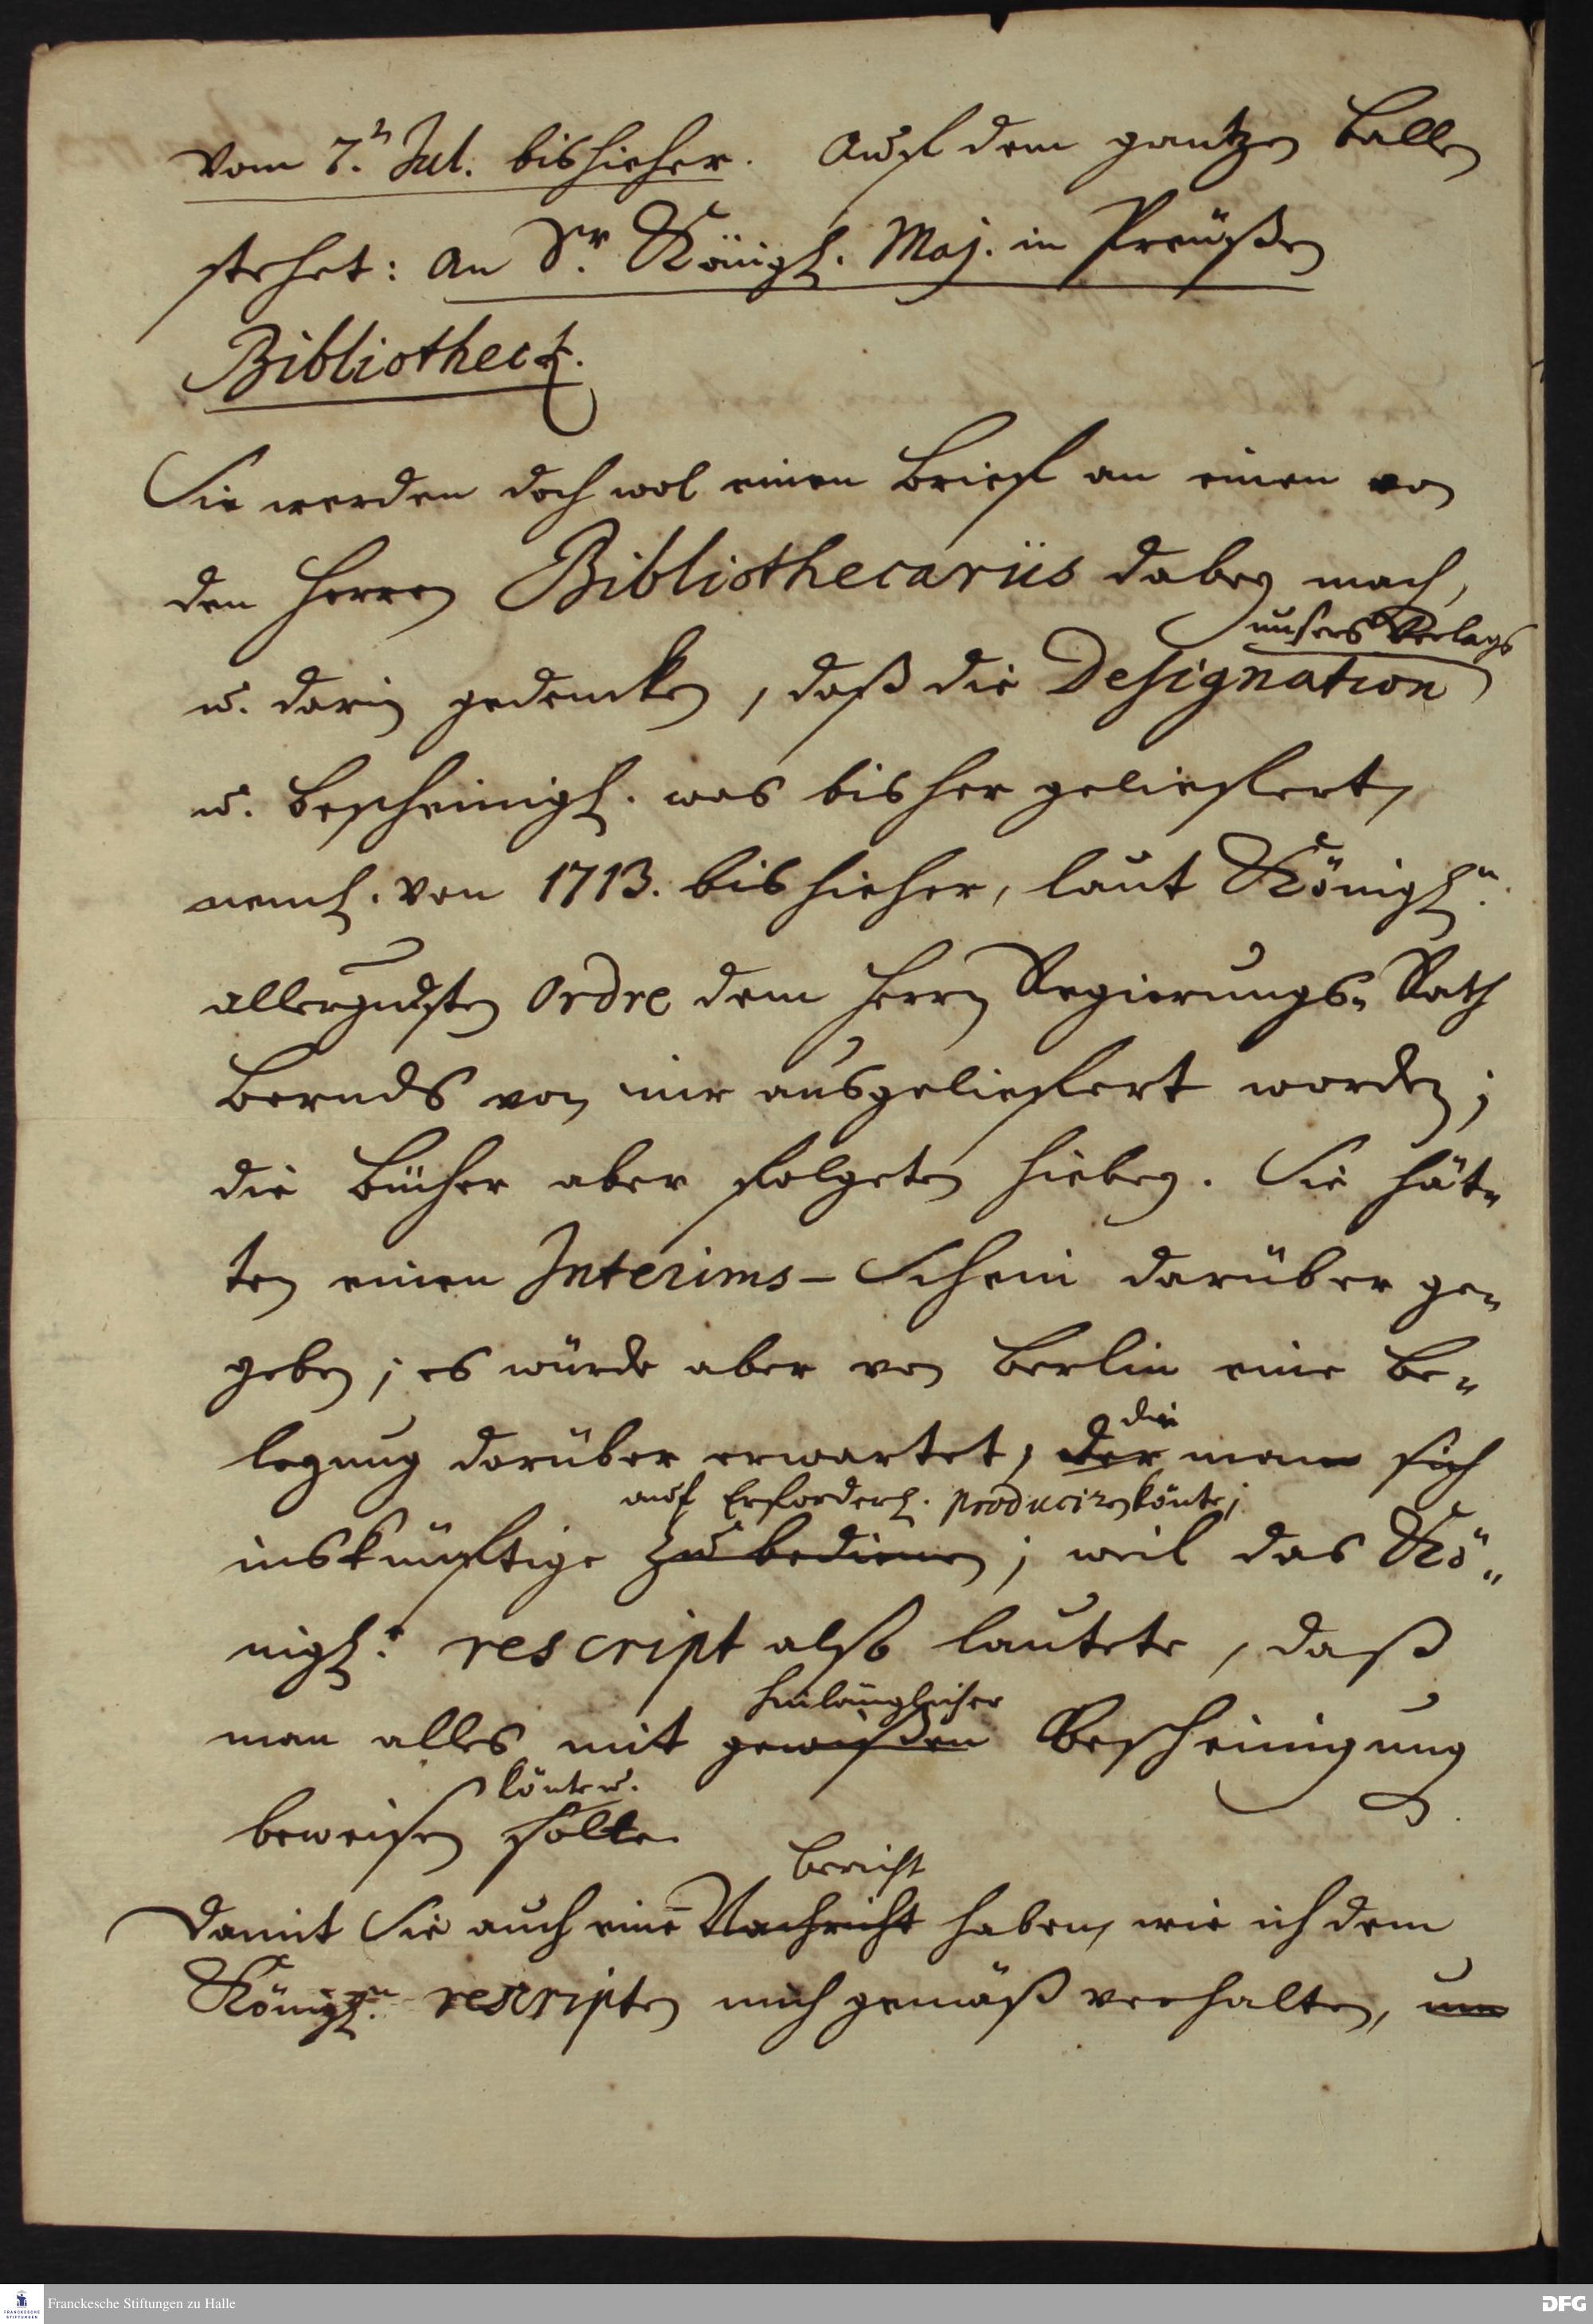 Vom 7.n Jul. bishieher. Auf dem gantzen Ballen
stehet: An Sr. Königl. Maj. in Preußen
Bibliotheck.
Sie werden doch wol einen Brief an einen von
den Herren Bibliothecariis dabey machen,
unsers Verlags
u. darin gedencken, daß die Designation
u. Bescheinigl. was bisher geliefert,
neml. von 1713. bis hieher, laut Königl.n
allergndsten Ordre dem Herrn Regierungs-Rath
Bernds von mir ausgeliefert worden;
die Bücher aber folgeten hiebey. Sie hät-
ten einen Interims-Schein darüber ge-
geben; es würde aber von Berlin eine Be-
die
legung darüber erwartet, der man sich
auf Erforderl. produciren könte;
inskünftige zu bedienen; weil das Kö-
nigl. rescript also lautete, daß
hinlänglicher
man alles mit gewißen Bescheinigung
könte u.
beweisen solte.
Bericht
Damit Sie auch eine Nachricht haben, wie ich dem
Königl.n rescripten mich gemäß verhalten, um
Franckesche Stiftungen zu Halle
FRANCKESCHE
STIFTUNGEN
DFG